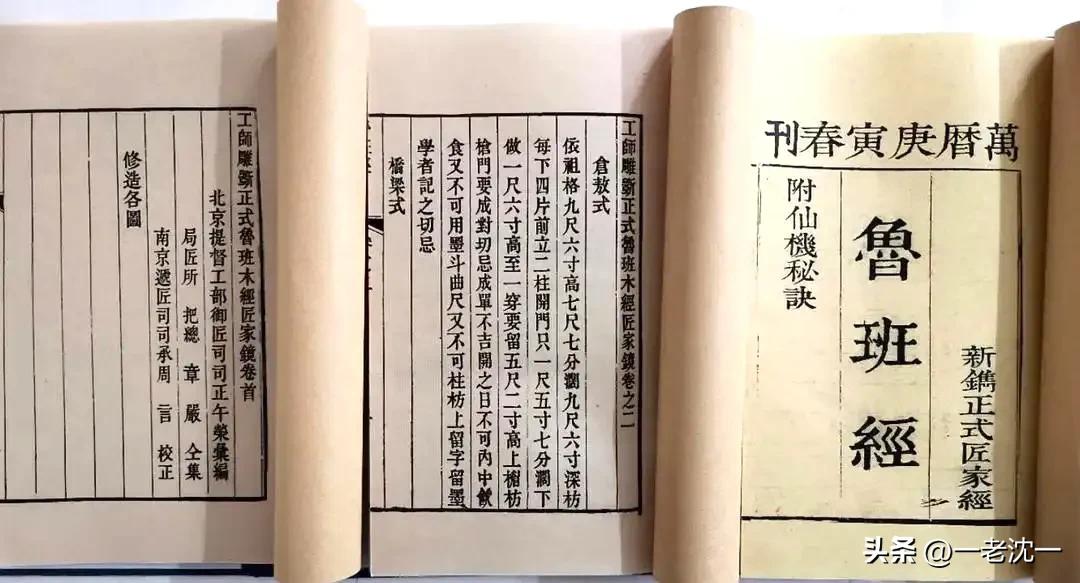 萬曆庚寅春刊
新鐫正式匠家經
魯班經
附仙機秘訣
工師雕斵正式魯班木經匠家鏡卷之二
倉敖式
依祖格九尺六寸高七尺七分濶九尺六寸深枋
每下四片前立二柱開門只一尺五寸七分濶下
做一尺六寸高至一穿要留五尺二寸高上楣枋
槍門要成對切忌成單不吉開之日不可內中飲
食又不可用墨斗曲尺又不可柱枋上留字留墨
學者記之切忌
橋梁式
工師雕斵正式魯班木經匠家鏡卷首
北京提督工部御匠司司正午榮彙編
局匠所把總章嚴仝集
南京遞匠司司承周言校正
修造各圖
头条 @一老沈一